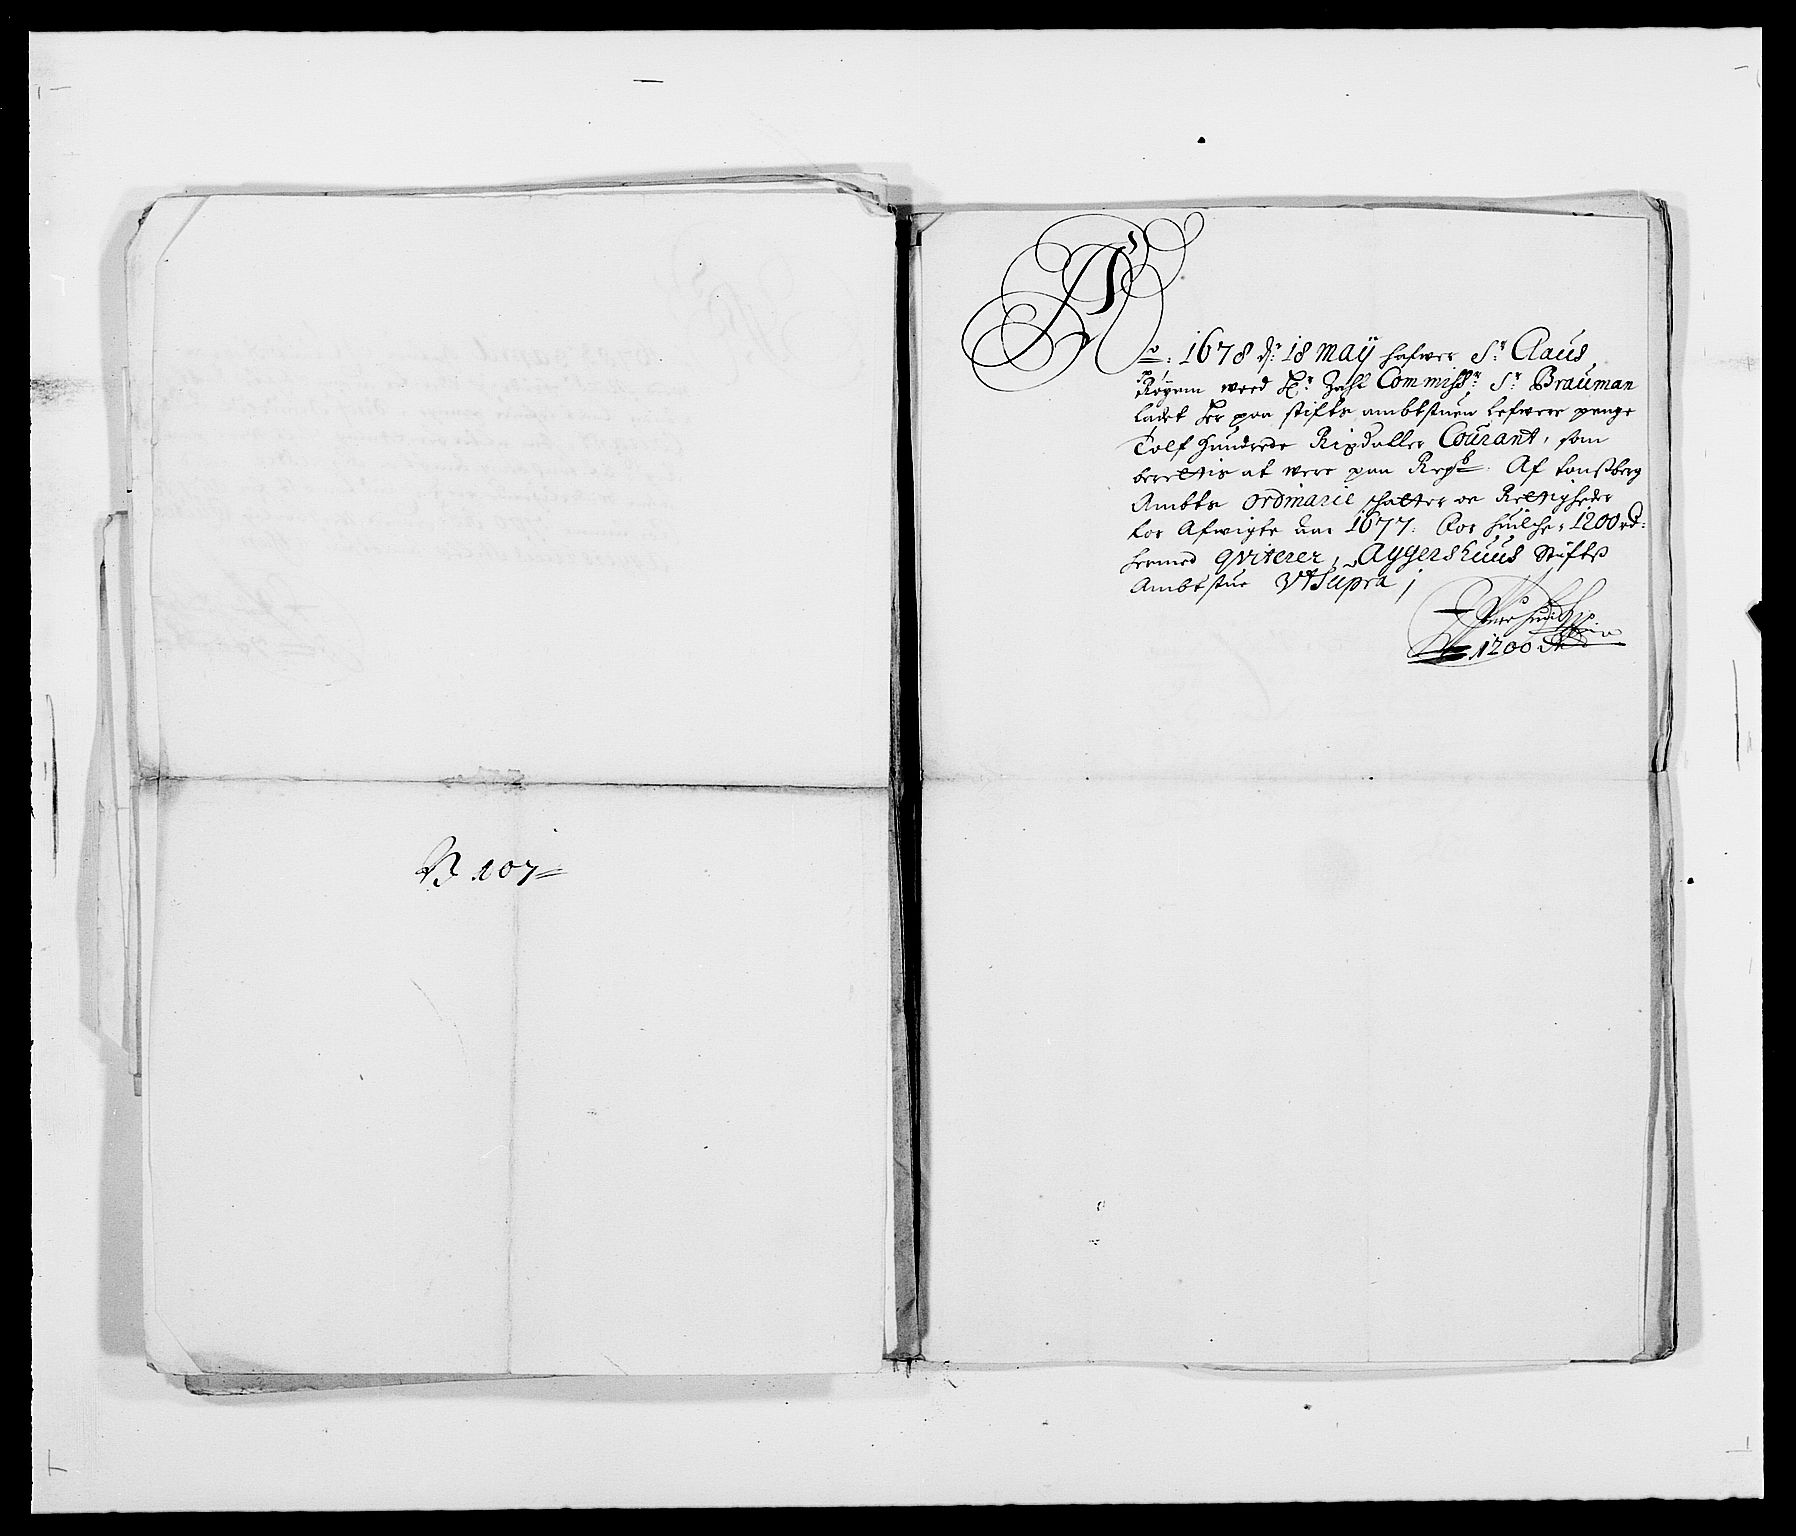 N 107
Ao: 1678 dr: 18 Maÿ hafwer Sr: Claus
Røÿem weed Hr: Zahl Commisßr Sr Brauman
ladet her paa stifts ambtstuen lefwere penge
Tolf Hundrede Rixdaller Courant, som
berettis at were paa Regb: Af tonßberg
Ambts ordinarie schatter oc Rettigheder
for Afwigte aar 1677. For huilche 1200 rd:
hermed qviterer, Aggershuus Stiftß
Ambtstue Vt Supra /
1200 Rd